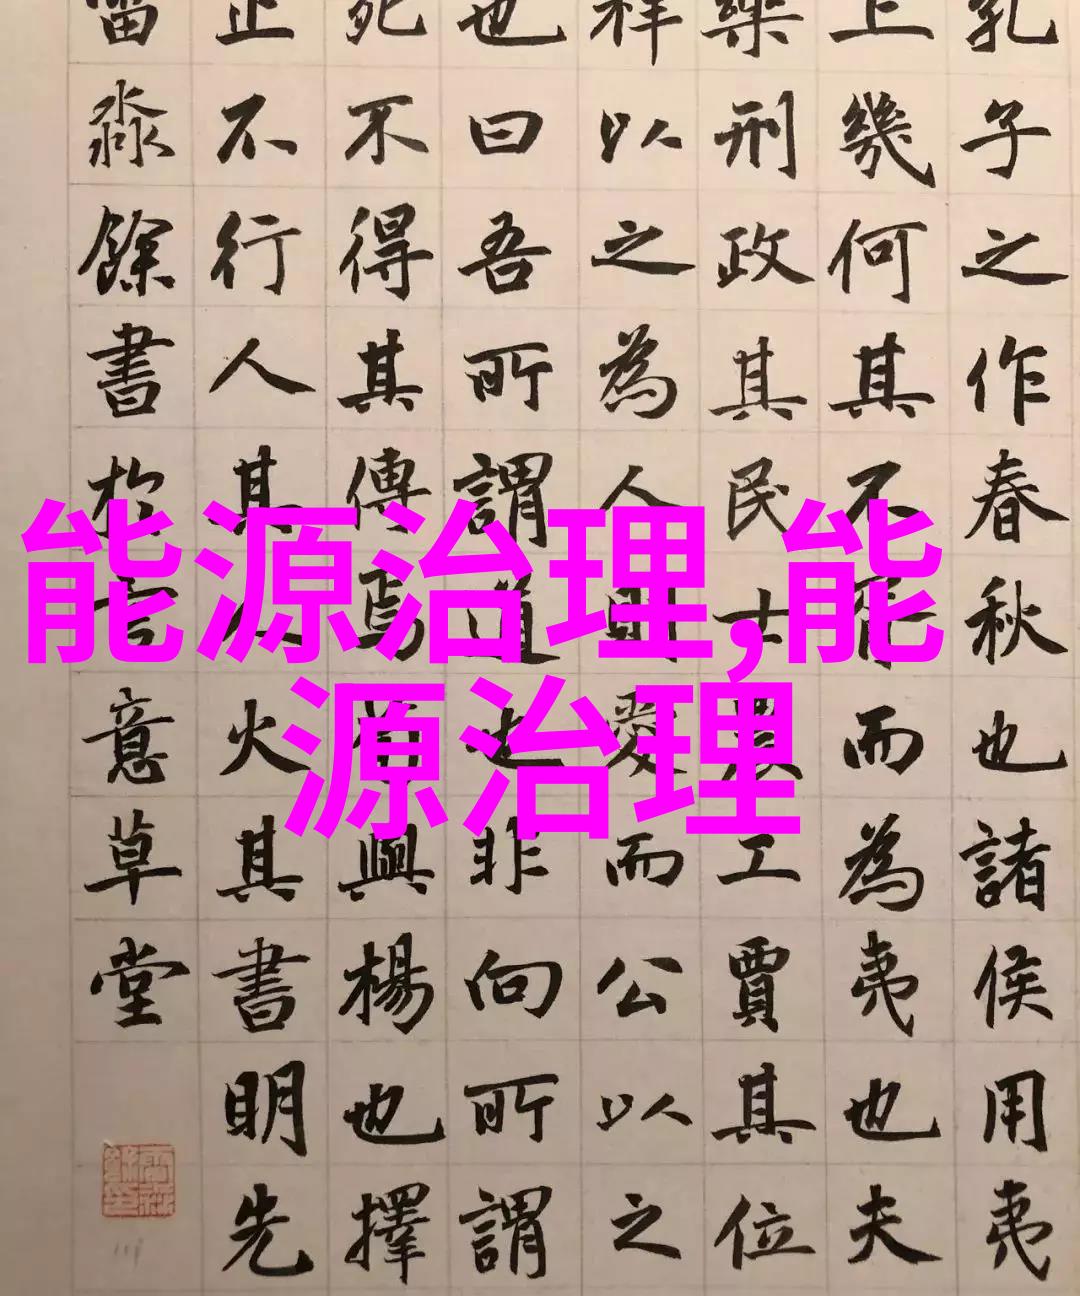 孔子之作春秋也諸侯用夷
上幾何其不而為夷也夫
樂刑政其民士農工賈其位
祥以之為人則愛而公以之
也曰吾所謂道也非向所謂
死不得其傳焉荀與楊也擇
止不行人其人火其書明先
淼餘書於意草堂
能源治理,能
源治理